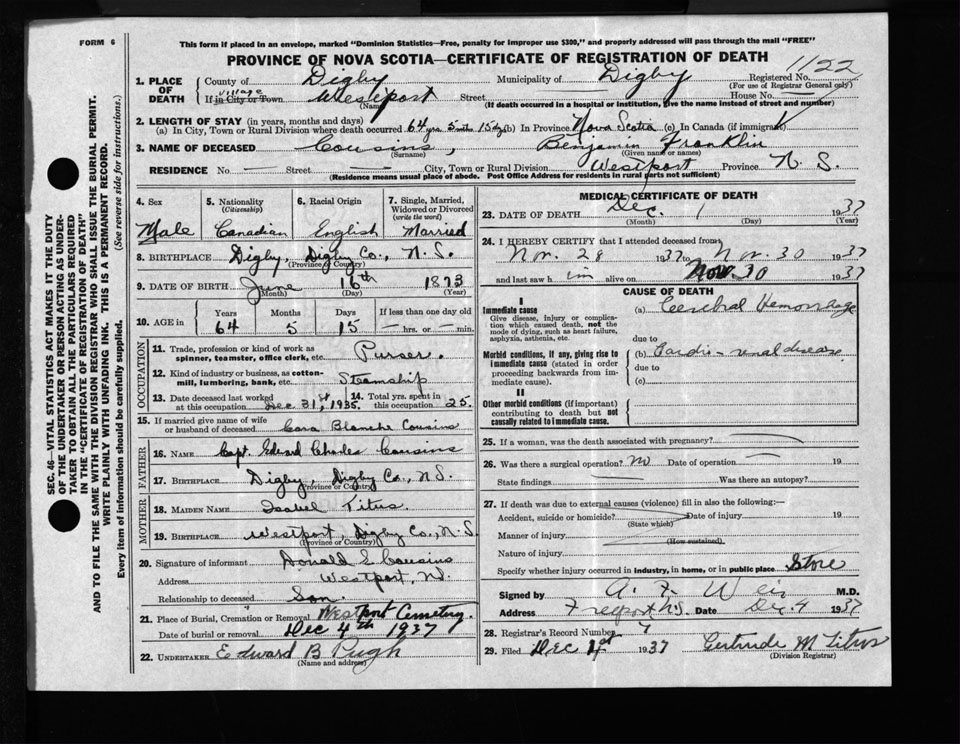 FORM 6
This form if placed in an envelope, marked "Dominion Statistics—Free, penalty for improper use $300," and properly addressed will pass through the mail "FREE"
PROVINCE OF NOVA SCOTIA—CERTIFICATE OF REGISTRATION OF DEATH
1122
1. PLACE OF DEATH County of Digby Municipality of Digby Registered No.
(For use of Registrar General only)
village
If in City or Town Westport Street House No. —
(Name) (If death occurred in a hospital or institution, give the name instead of street and number)
2. LENGTH OF STAY (in years, months and days)
(a) In City, Town or Rural Division where death occurred 64 yrs 5 mths 15 dys (b) In Province Nova Scotia (c) In Canada (if immigrant)
3. NAME OF DECEASED Cousins, Benjamin Franklin
(Surname) (Given name or names)
RESIDENCE No — Street — City, Town or Rural Division Westport Province N. S.
(Residence means usual place of abode. Post Office Address for residents in rural parts not sufficient)
4. Sex
Male
5. Nationality
(Citizenship)
Canadian
6. Racial Origin
English
7. Single, Married, Widowed or Divorced
(write the word)
Married
8. BIRTHPLACE Digby, Digby Co., N. S.
(Province or Country)
9. DATE OF BIRTH June 16th 1873
(Month) (Day) (Year)
10. AGE in Years Months Days If less than one day old
64 5 15 — hrs. or — min.
OCCUPATION
11. Trade, profession or kind of work as spinner, teamster, office clerk, etc. Purser.
12. Kind of industry or business, as cotton-mill, lumbering, bank, etc. Steamship
13. Date deceased last worked at this occupation Dec 31st 1935.
14. Total yrs. spent in this occupation 25.
15. If married give name of wife or husband of deceased Cora Blanche Cousins
FATHER
16. NAME Capt. Edward Charles Cousins
17. BIRTHPLACE Digby, Digby Co., N.S.
(Province or Country)
MOTHER
18. MAIDEN NAME Isabel Titus
19. BIRTHPLACE Westport, Digby Co., N.S.
(Province or Country)
20. Signature of informant Donald S. Cousins
Address Westport, N.S.
Relationship to deceased Son.
21. Place of Burial, Cremation or Removal Westport Cemetery.
Date of burial or removal Dec 4th 1937
22. UNDERTAKER Edward B Pugh
(Name and address)
MEDICAL CERTIFICATE OF DEATH
23. DATE OF DEATH Dec. 1 1937
(Month) (Day) (Year)
24. I HEREBY CERTIFY that I attended deceased from
Nov. 28 1937 to Nov. 30 1937
and last saw him alive on Nov. 30 1937
CAUSE OF DEATH
I
Immediate cause
Give disease, injury or complication which caused death, not the mode of dying, such as heart failure, asphyxia, asthenia, etc.
(a) Cerebral Hemorrhage
due to
Morbid conditions, if any, giving rise to immediate cause (stated in order proceeding backwards from immediate cause).
(b) Cardio-renal disease
due to
(c)
II
Other morbid conditions (if important) contributing to death but not causally related to immediate cause.
25. If a woman, was the death associated with pregnancy?
26. Was there a surgical operation? no Date of operation — 19
State findings — Was there an autopsy?
27. If death was due to external causes (violence) fill in also the following:—
Accident, suicide or homicide? Date of injury 19
(State which)
Manner of injury
(How sustained)
Nature of injury
Specify whether injury occurred in industry, in home, or in public place Store
Signed by A. F. Weir M.D.
Address Freeport N.S. Date Dec. 4 1937
28. Registrar's Record Number 7
29. Filed Dec 4th 1937 Gertrude M Titus
(Division Registrar)
SEC. 46—VITAL STATISTICS ACT MAKES IT THE DUTY OF THE UNDERTAKER OR PERSON ACTING AS UNDERTAKER TO OBTAIN ALL THE PARTICULARS REQUIRED IN THE "CERTIFICATE OF REGISTRATION OF DEATH" AND TO FILE THE SAME WITH THE DIVISION REGISTRAR WHO SHALL ISSUE THE BURIAL PERMIT.
WRITE PLAINLY WITH UNFADING INK. THIS IS A PERMANENT RECORD.
Every item of information should be carefully supplied. (See reverse side for instructions.)